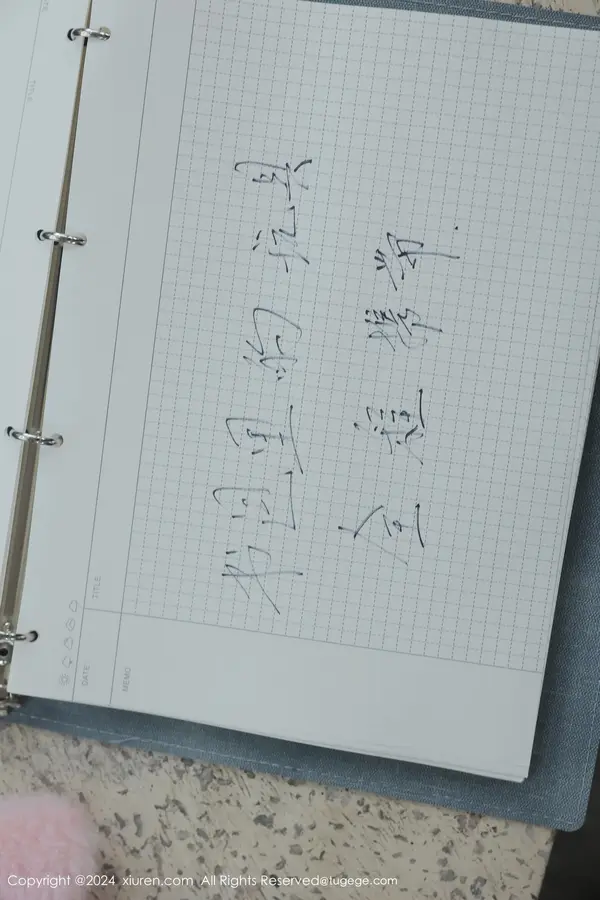 书包里的玩具
全程携带.
TITLE
DATE
MEMO
Copyright @2024 xiuren.com All Rights Reserved@tugege.com